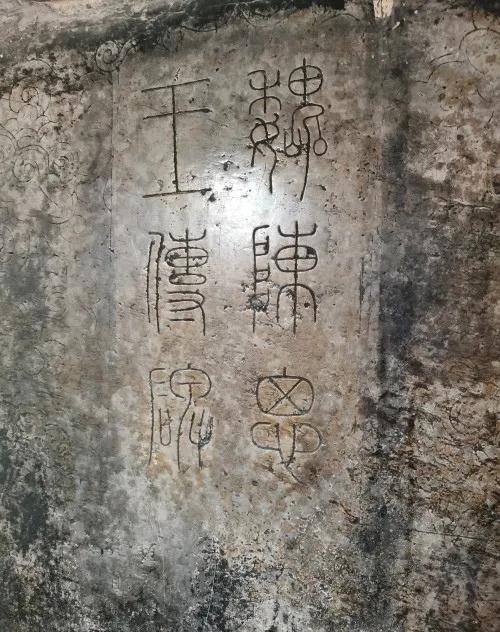 魏陳思
王傳碑